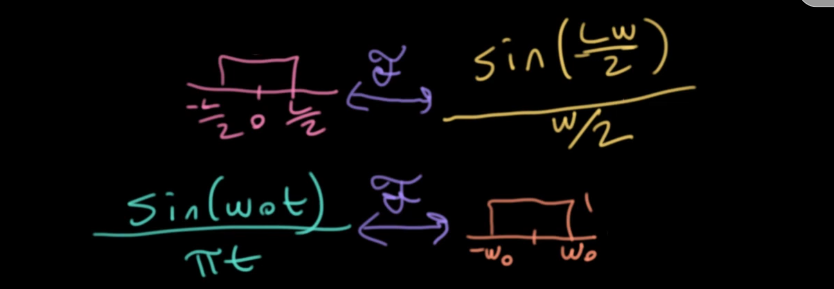 -L/2 0 L/2 ℱ sin(Lw/2) / w/2
sin(w₀t) / πt ℱ -w₀ w₀ 1